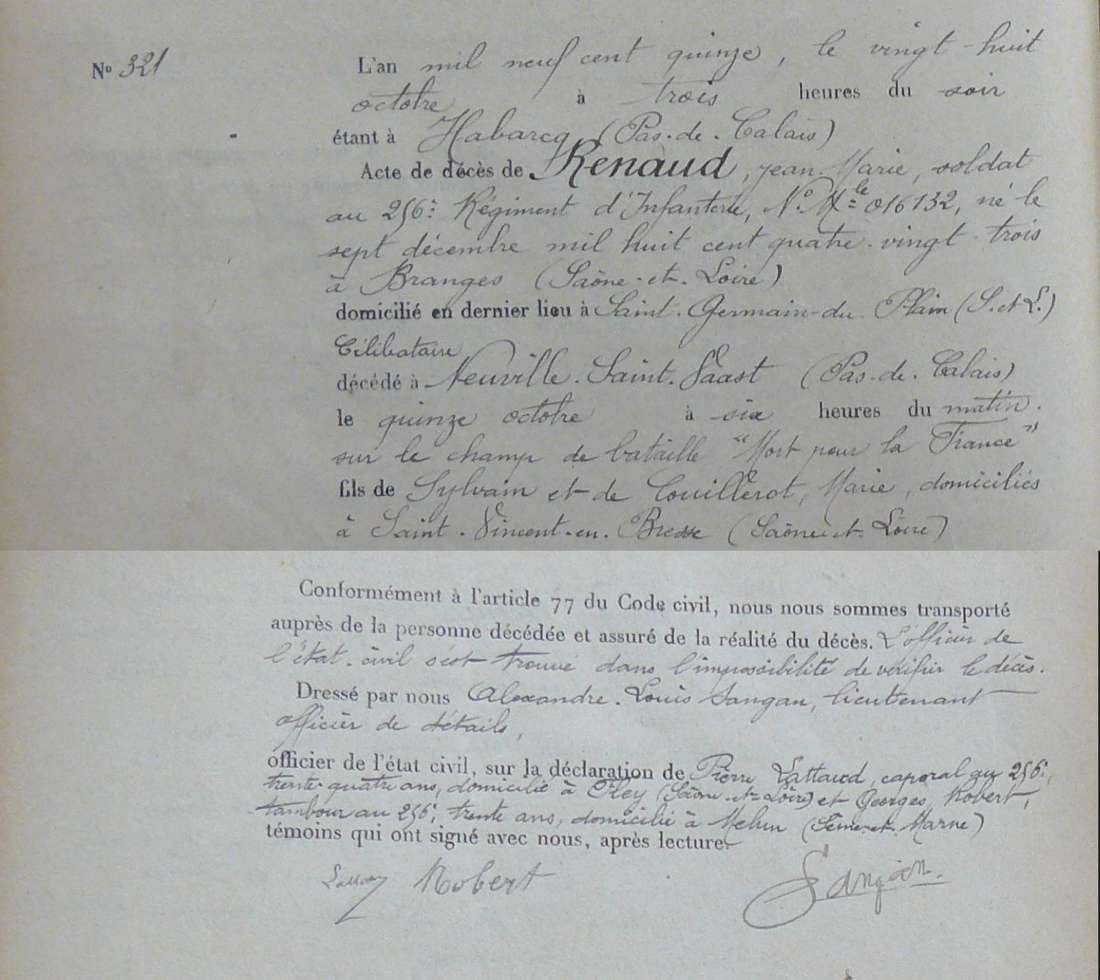 N° 321
L'an mil neuf cent quinze, le vingt-huit
octobre à trois heures du soir
étant à Habarcq (Pas-de-Calais)
Acte de décès de Renaud, Jean-Marie, soldat
au 256e Régiment d'Infanterie, N° Mle 016132, né le
sept décembre mil huit cent quatre-vingt-trois
à Branges (Saône-et-Loire)
domicilié en dernier lieu à Saint-Germain-du-Plain (S.et L.)
Célibataire
décédé à Neuville-Saint-Vaast (Pas-de-Calais)
le quinze octobre à six heures du matin.
sur le champ de bataille "Mort pour la France"
fils de Sylvain et de Couillerot, Marie, domiciliés
à Saint-Vincent-en-Bresse (Saône-et-Loire)
Conformément à l'article 77 du Code civil, nous nous sommes transporté
auprès de la personne décédée et assuré de la réalité du décès. L'officier de
l'état-civil s'est trouvé dans l'impossibilité de vérifier le décès.
Dressé par nous Alexandre-Louis Sangan, lieutenant
officier de détails,
officier de l'état civil, sur la déclaration de Pierre Lattaud, caporal au 256e,
trente-quatre ans, domicilié à Fley (Saône-et-Loire) et Georges Robert,
tambour au 256e, trente ans, domicilié à Melun (Seine-et-Marne)
témoins qui ont signé avec nous, après lecture.
Robert Sangan.